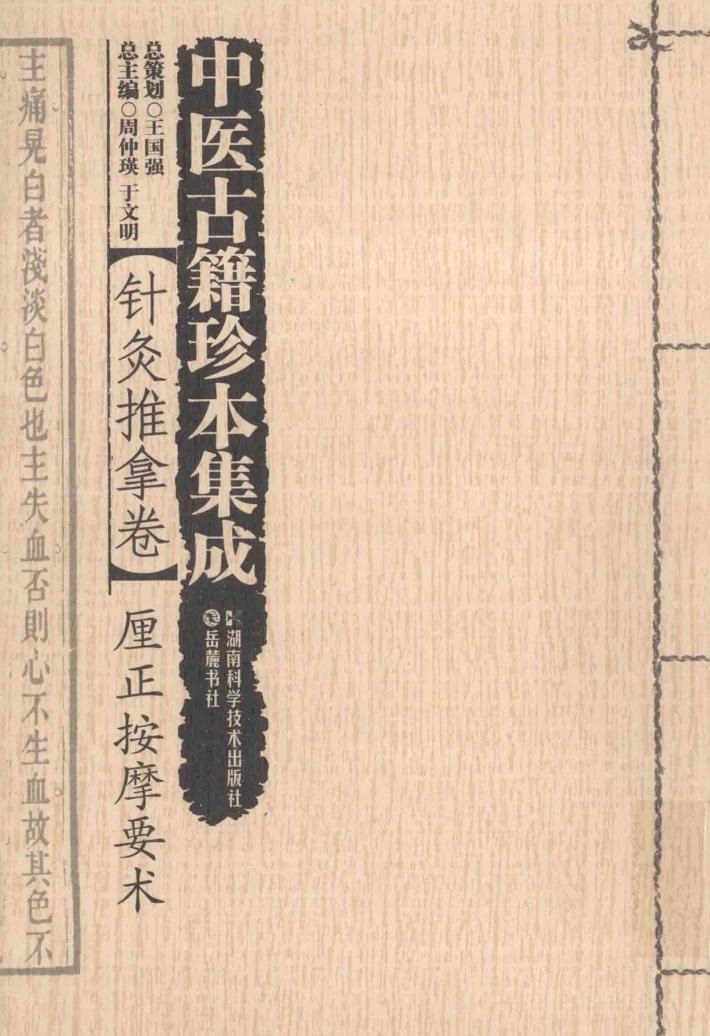 中医古籍珍本集成
湖南科学技术出版社
岳麓书社
总策划○王国强
总主编○周仲瑛 于文明
【针灸推拿卷】
厘正按摩要术
主痛晃白者淺淡白色也主失血否則心不生血故其色不